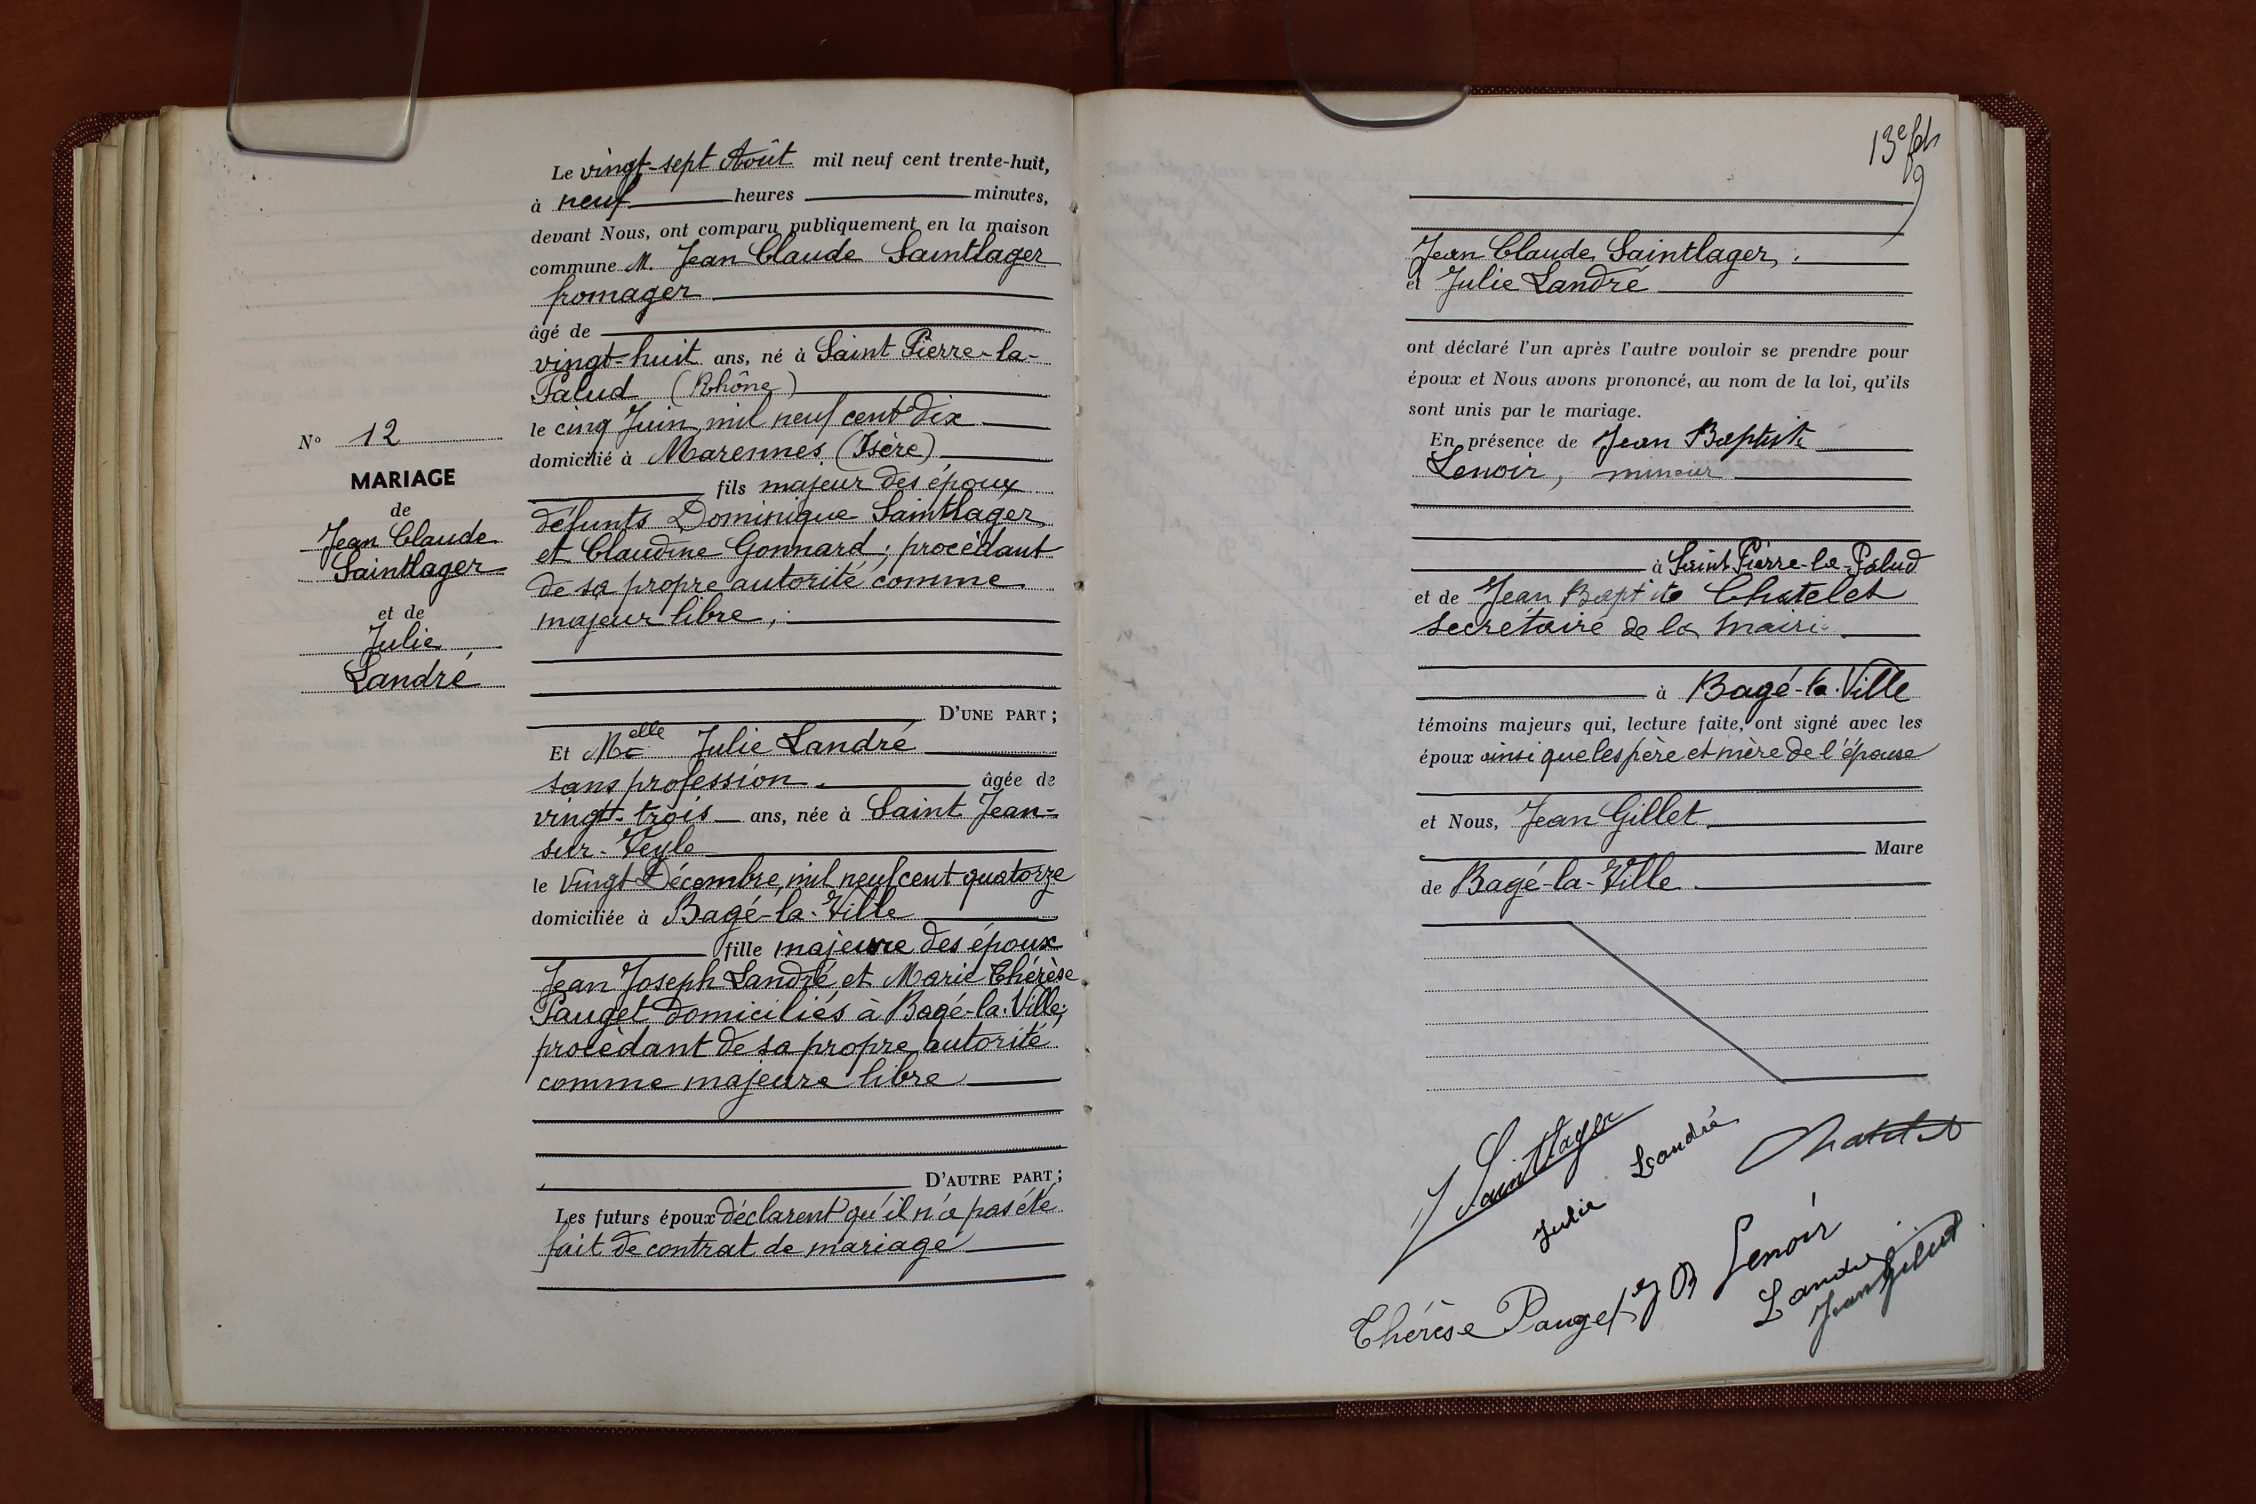 N° 12
MARIAGE
de
Jean Claude
Saintlager
et de
Julie
Landré
Le vingt-sept Août mil neuf cent trente-huit,
à neuf heures minutes,
devant Nous, ont comparu publiquement en la maison
commune M. Jean Claude Saintlager
fromager
âgé de
vingt-huit ans, né à Saint Pierre-la-
Palud (Rhône)
le cinq Juin mil neuf cent dix
domicilié à Marennes (Isère)
fils majeur des époux
défunts Dominique Saintlager
et Claudine Gonnard ; procédant
de sa propre autorité comme
majeur libre ;
D'UNE PART ;
Et Melle Julie Landré
sans profession. âgée de
vingt-trois ans, née à Saint Jean-
sur-Veyle
le vingt Décembre mil neuf cent quatorze
domiciliée à Bagé-la-Ville
fille majeure des époux
Jean Joseph Landré et Marie Thérèse
Pauget domiciliés à Bagé-la-Ville ;
procédant de sa propre autorité
comme majeure libre
D'AUTRE PART ;
Les futurs époux déclarent qu'il n'a pas été
fait de contrat de mariage
13e
Jean Claude Saintlager, .
et Julie Landré
ont déclaré l'un après l'autre vouloir se prendre pour
époux et Nous avons prononcé, au nom de la loi, qu'ils
sont unis par le mariage.
En présence de Jean Baptiste
Lenoir, mineur
à Saint Pierre-la-Palud
et de Jean Baptiste Chatelet
secrétaire de la mairie
à Bagé-la-Ville
témoins majeurs qui, lecture faite, ont signé avec les
époux ainsi que les père et mère de l'épouse
et Nous, Jean Gillet
Maire
de Bagé-la-Ville
J Saintlager
Julie Landré
Chatelet
Thérèse Pauget
J B Lenoir
Landré
Jean Gillet